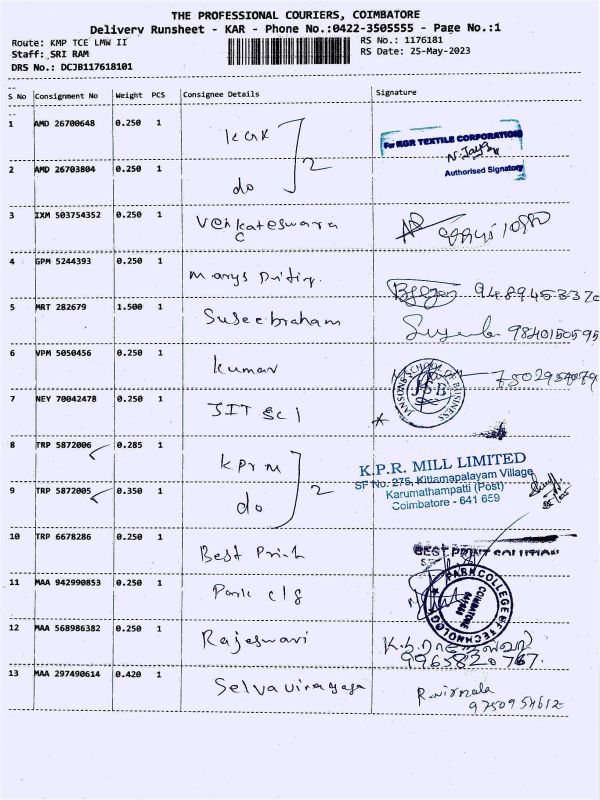 THE PROFESSIONAL COURIERS, COIMBATORE
Delivery Runsheet - KAR - Phone No.:0422-3505555 - Page No.:1
Route: KMP TCE LMW II
RS No.: 1176181
Staff: SRI RAM
RS Date: 25-May-2023
DRS No.: DCJB117618101
S No Consignment No Weight PCS Consignee Details Signature
1 AMD 26700648 0.250 1 KGR
For KGR TEXTILE CORPORATION
N. Jaya
Authorised Signatory
2 AMD 26703804 0.250 1 do 2
3 IXM 503754352 0.250 1 Venkateswara
4 GPM 5244393 0.250 1 Marys
5 MRT 282679 1.500 1 Suseebraham 9840150595
6 VPM 5050456 0.250 1 Kumar
7 NEY 70042478 0.250 1 JIT
JANSONS SCHOOL OF BUSINESS
JSB
8 TRP 5872006 0.285 1 KPR M
K.P.R. MILL LIMITED
SF No. 275, Kittamapalayam Village
Karumathampatti (Post)
Coimbatore - 641 659
9 TRP 5872005 0.350 1 do 2
10 TRP 6678286 0.250 1 Best Print
BEST PRINT SOLUTION
11 MAA 942990853 0.250 1 Park clg
PARK COLLEGE OF TECHNOLOGY
COIMBATORE
12 MAA 568986382 0.250 1 Rajeswari
9965820767.
13 MAA 297490614 0.420 1 Selvavinayaga R. Nirmala
9750954612